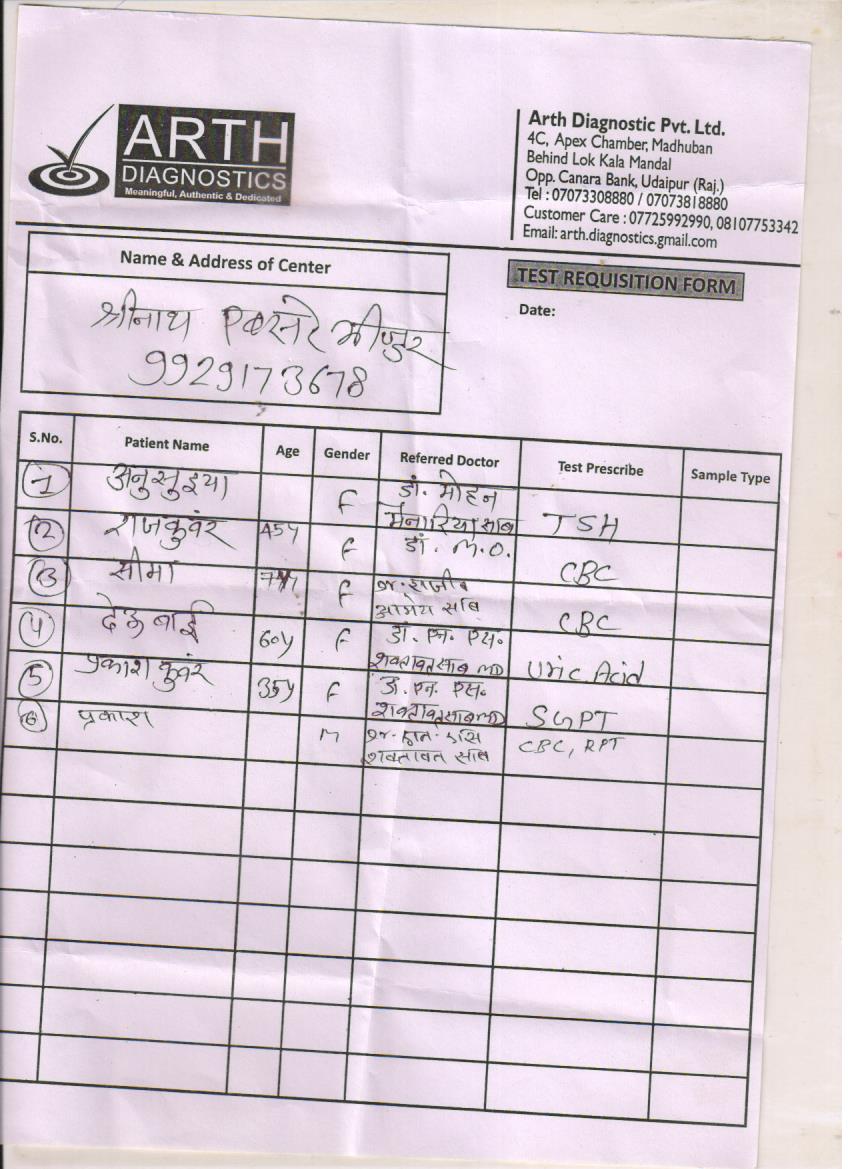 ARTH
DIAGNOSTICS
Meaningful, Authentic & Dedicated
Arth Diagnostic Pvt. Ltd.
4C, Apex Chamber, Madhuban
Behind Lok Kala Mandal
Opp. Canara Bank, Udaipur (Raj.)
Tel : 07073308880 / 07073818880
Customer Care : 07725992990, 08107753342
Email: arth.diagnostics.gmail.com
Name & Address of Center
श्रीनाथ
9929173678
TEST REQUISITION FORM
Date:
S.No. Patient Name Age Gender Referred Doctor Test Prescribe Sample Type
1 अनुसुइया F डॉ. मोहन
मेनारिया साब TSH
2 राजकुवंर 45y F डॉ. M.O. CBC
3 सीमा F
साब CBC
4 देऊ बाई 60y F डॉ. एन. एस.
शक्तावत साब MD Uric Acid
5 प्रकाश कुवंर 35y F डॉ. एन. एस.
शक्तावत साब MD SGPT
6 प्रकाश M
शक्तावत साब CBC, RPT